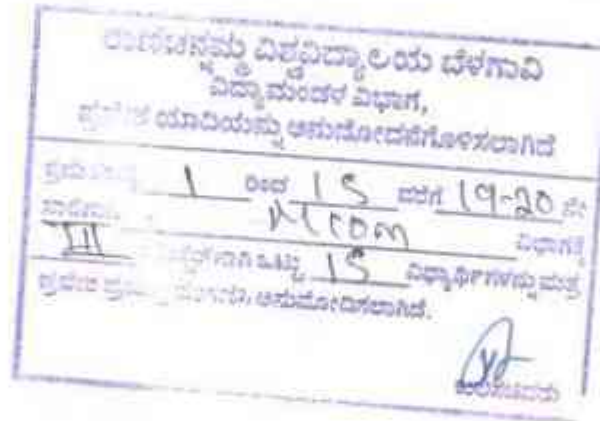 ರಾಣಿಚನ್ನಮ್ಮ ವಿಶ್ವವಿದ್ಯಾಲಯ ಬೆಳಗಾವಿ
ವಿದ್ಯಾಮಂಡಳ ವಿಭಾಗ,
ಪ್ರವೇಶ ಯಾದಿಯನ್ನು ಅನುಮೋದನೆಗೊಳಿಸಲಾಗಿದೆ
1 ರಿಂದ 15 ವರೆಗೆ 19-20 ನೇ
M.com ವಿಭಾಗಕ್ಕೆ
III ಒಟ್ಟು 15 ವಿದ್ಯಾರ್ಥಿಗಳನ್ನು ಮಾತ್ರ
ಪ್ರವೇಶ ಅನುಮೋದಿಸಲಾಗಿದೆ.
ಕುಲಸಚಿವರು